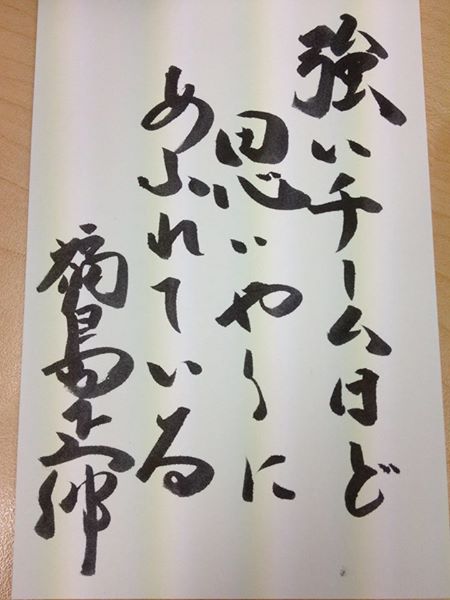 強いチームほど
思いやりに
あふれている
福島正伸